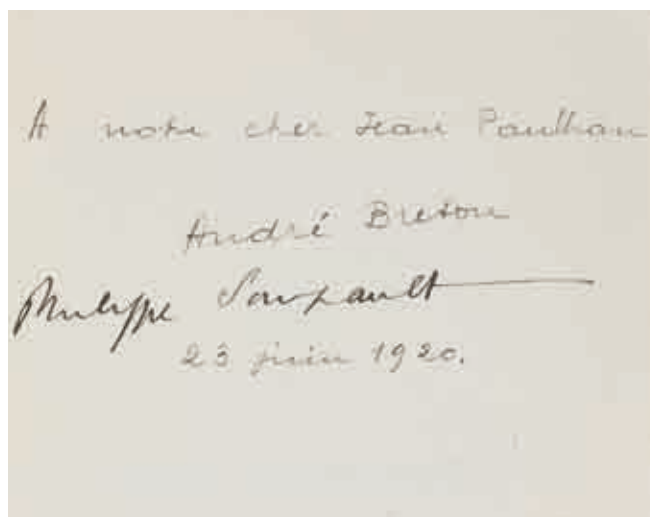 A notre cher Jean Paulhan
André Breton
Philippe Soupault
23 juin 1920.